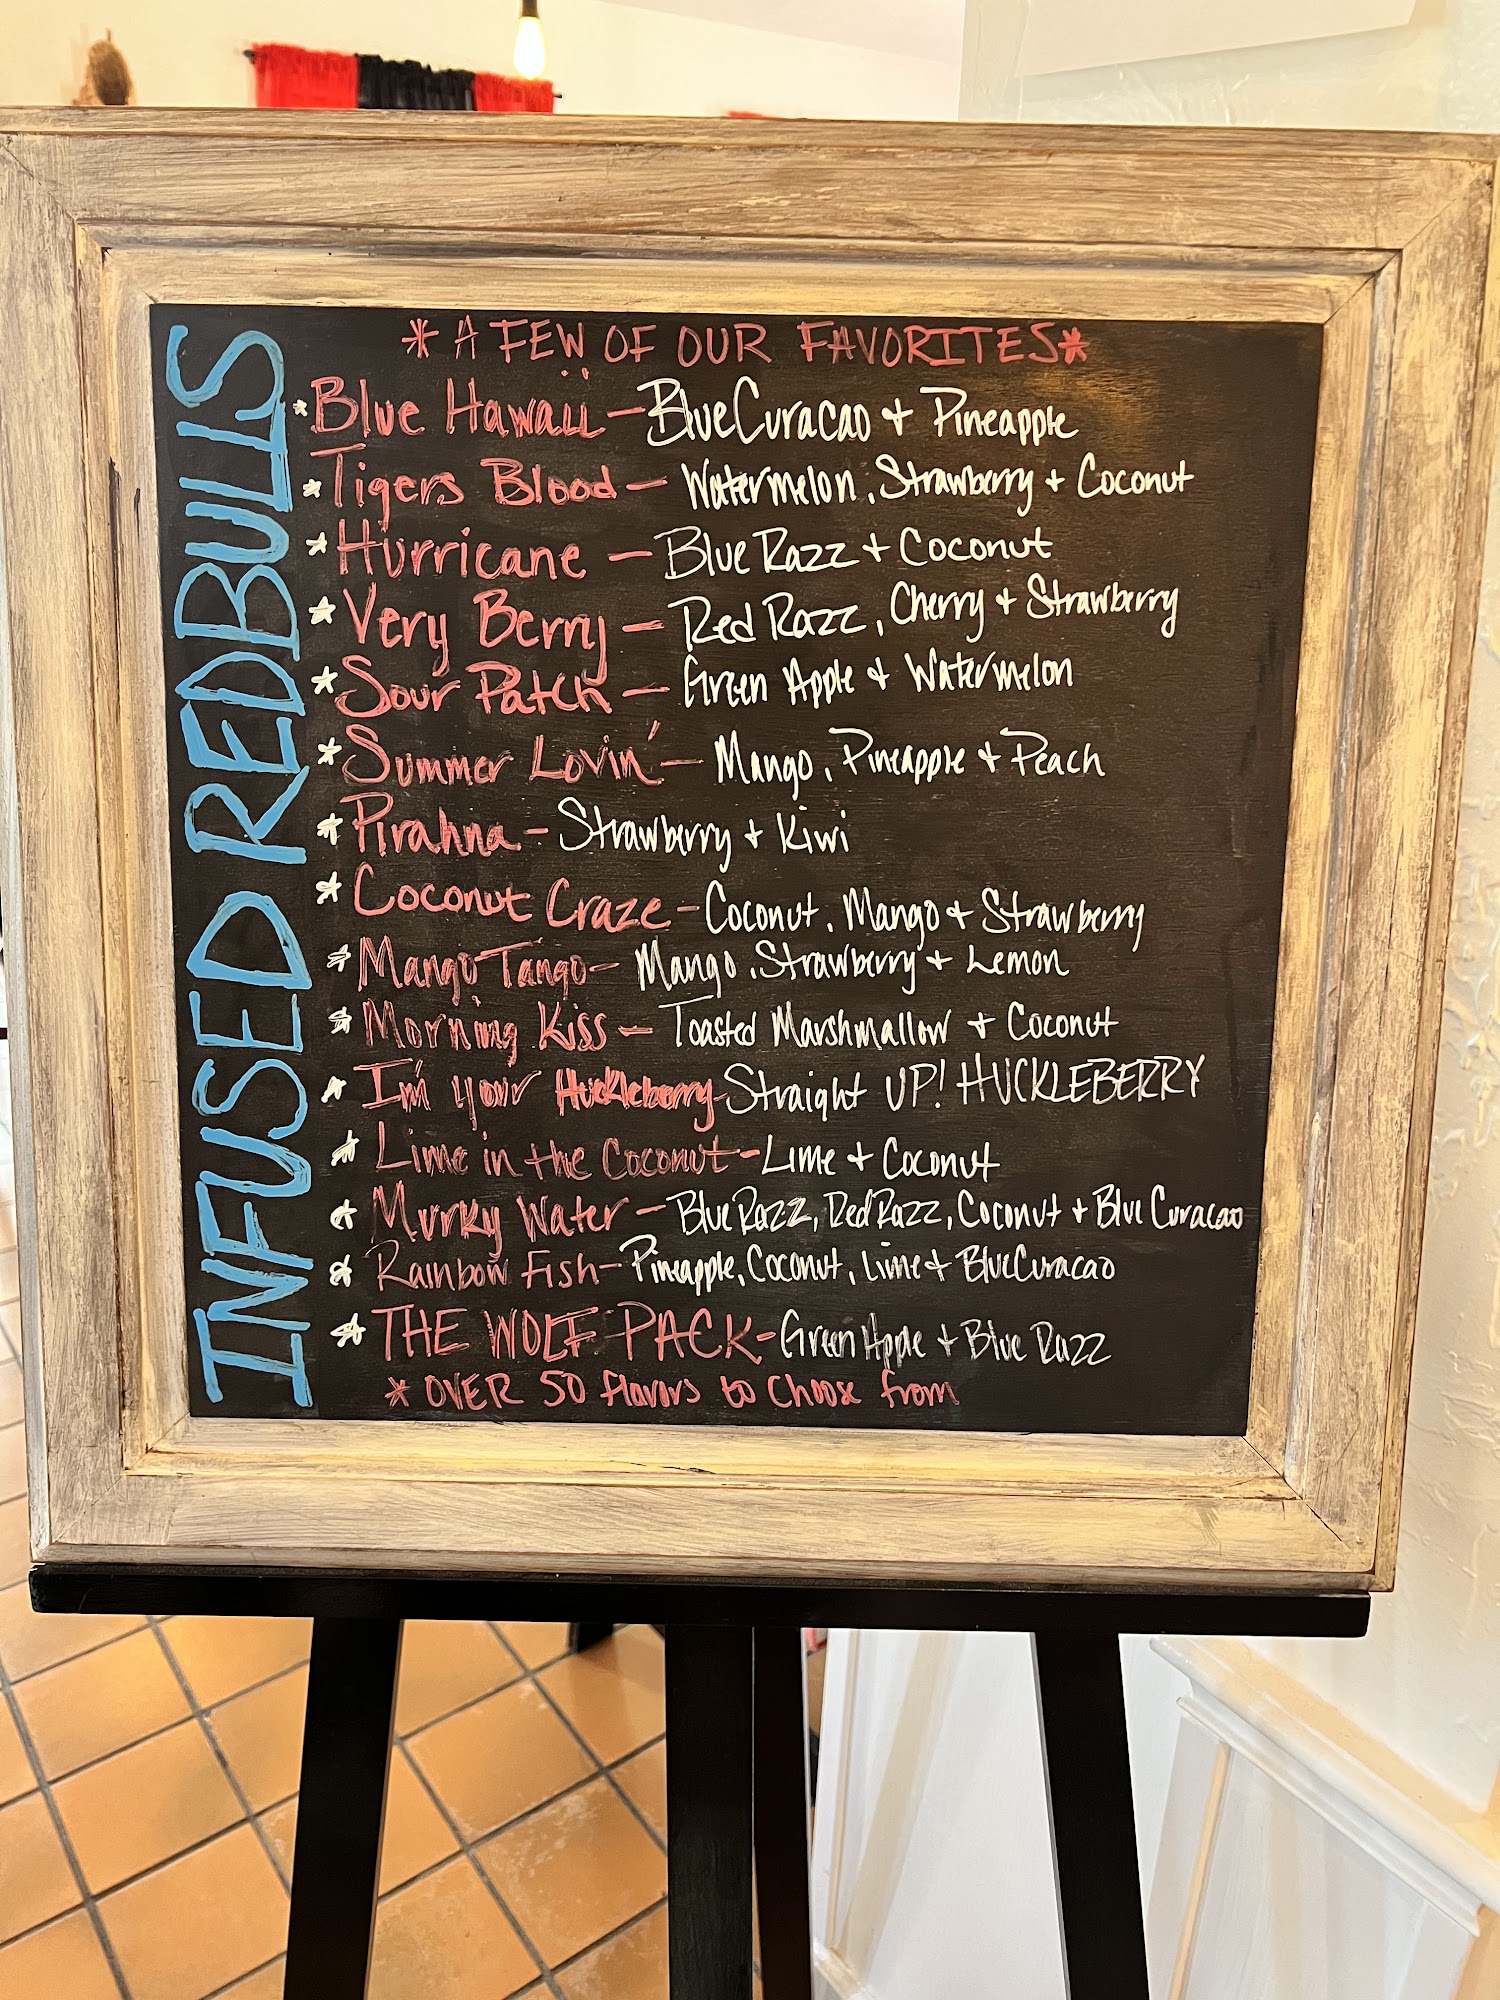 INFUSED REDBULLS
* A FEW OF OUR FAVORITES *
* Blue Hawaii - Blue Curacao + Pineapple
* Tigers Blood - Watermelon, Strawberry + Coconut
* Hurricane - Blue Razz + Coconut
* Very Berry - Red Razz, Cherry + Strawberry
* Sour Patch - Green Apple + Watermelon
* Summer Lovin' - Mango, Pineapple + Peach
* Pirahna - Strawberry + Kiwi
* Coconut Craze - Coconut, Mango + Strawberry
* Mango Tango - Mango, Strawberry + Lemon
* Morning Kiss - Toasted Marshmallow + Coconut
* I'm your Huckleberry - Straight UP! HUCKLEBERRY
* Lime in the Coconut - Lime + Coconut
* Murky Water - Blue Razz, Red Razz, Coconut + Blue Curacao
* Rainbow Fish - Pineapple, Coconut, Lime + Blue Curacao
* THE WOLF PACK - Green Apple + Blue Razz
* OVER 50 flavors to choose from